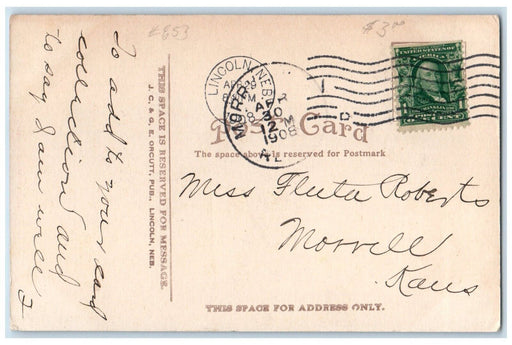 #853
$3.00
LINCOLN, NEBR.
Post Card
The space above is reserved for Postmark
12 M
1908
UNITED STATES OF AMERICA
To add to your card
collection and
to say I am well
THIS SPACE IS RESERVED FOR MESSAGE.
J. C. & G. E. ORCUTT, PUB., LINCOLN, NEB.
Miss Fleta Roberts
Morrill
Kans
THIS SPACE FOR ADDRESS ONLY.